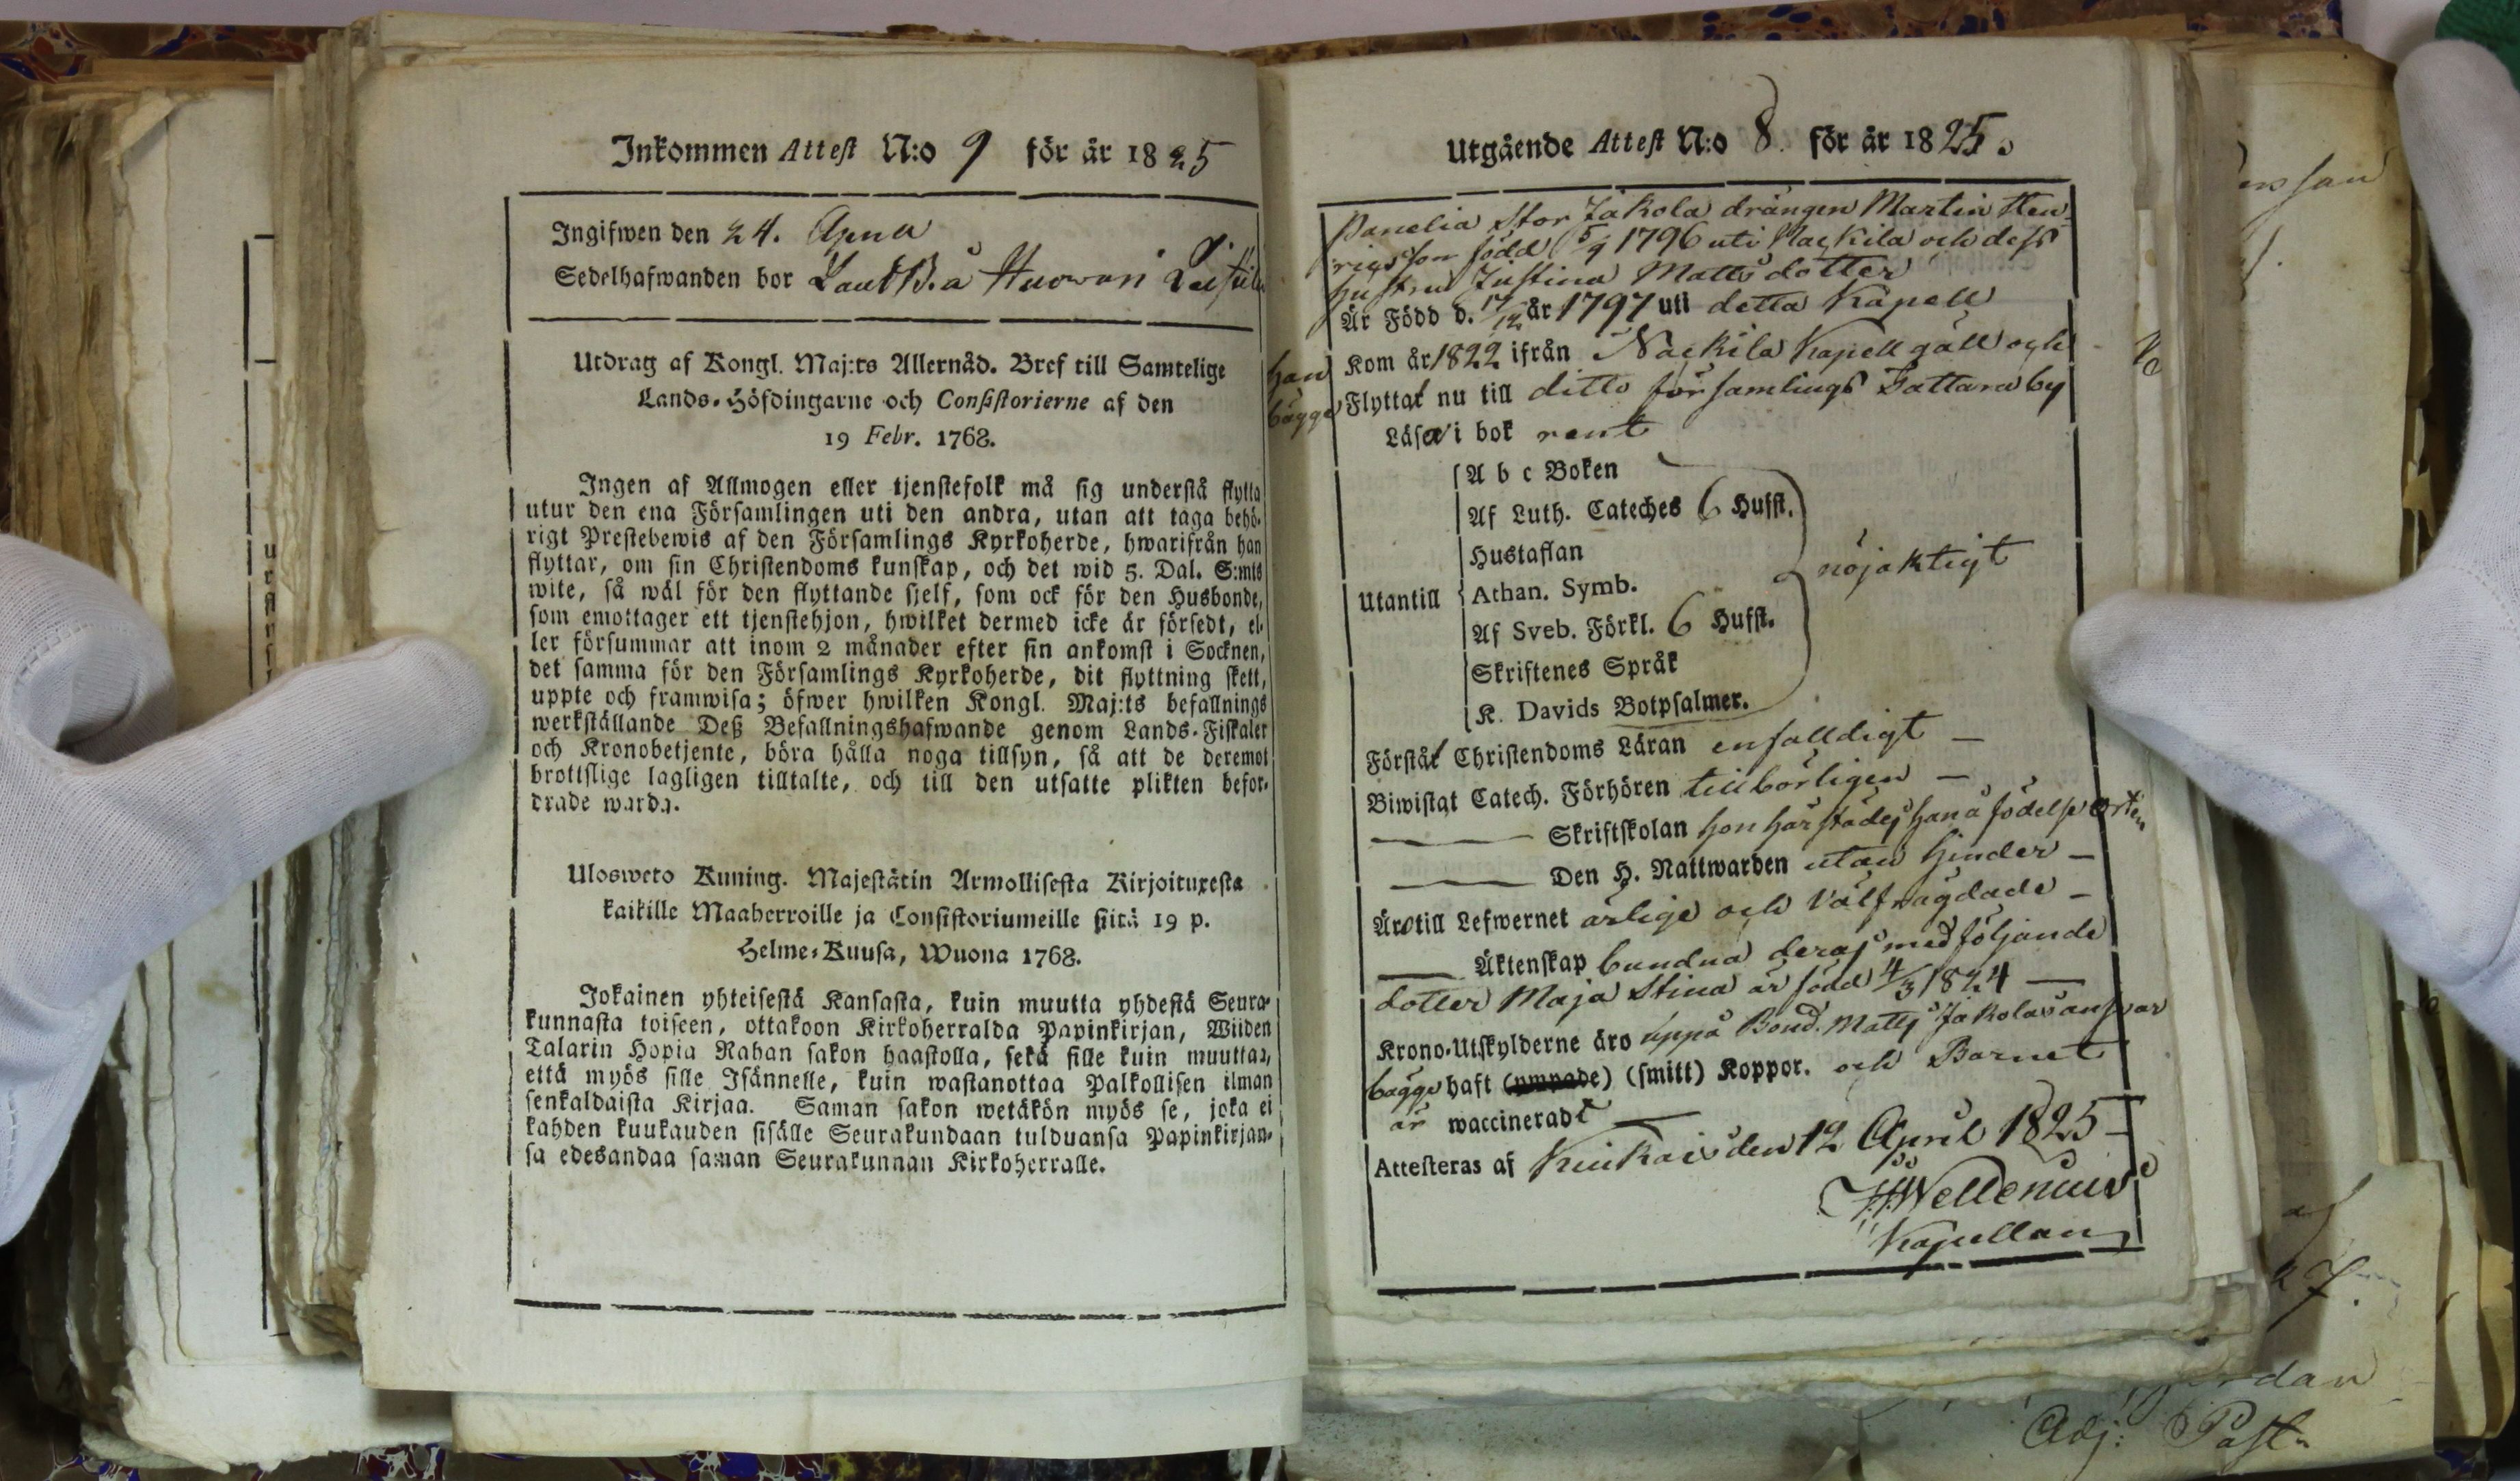 Inkommen Attest N:o 9 för år 1825
Ingifwen den 24. April
Sedelhafwanden bor
Utdrag af Kongl. Maj:ts Allernåd. Bref till Samtelige
Lands-Höfdingarne och Consistorierne af den
19 Febr. 1768.
Ingen af Allmogen eller tjenstefolk må sig understå flytta
utur den ena Församlingen uti den andra, utan att taga behö-
rigt Prestebewis af den Församlings Kyrkoherde, hwarifrån han
flyttar, om sin Christendoms kunskap, och det wid 5. Dal. S:mts
wite, så wäl för den flyttande sjelf, som ock för den Husbonde,
som emottager ett tjenstehjon, hwilket dermed icke är försedt, el-
ler försummar att inom 2 månader efter sin ankomst i Socknen,
det samma för den Församlings Kyrkoherde, dit flyttning skett,
uppte och framwisa; öfwer hwilken Kongl. Maj:ts befallnings
werkställande Deß Befallningshafwande genom Lands-Fiskaler
och Kronobetjente, böra hålla noga tillsyn, så att de deremot
brottslige lagligen tilltalte, och till den utsatte plikten befor-
drade warda.
Ulosweto Kuning. Majestätin Armollisesta Kirjoituxesta
kaikille Maaherroille ja Consistoriumeille siitä 19 p.
Helme-Kuusa, Wuona 1768.
Jokainen yhteisestä Kansasta, kuin muutta yhdestä Seura-
kunnasta toiseen, ottakoon Kirkoherralda Papinkirjan, Wiiden
Talarin Hopia Rahan sakon haastolla, sekä sille kuin muuttaa,
että myös sille Isännelle, kuin wastanottaa Palkollisen ilman
senkaldaista Kirjaa. Saman sakon wetäkön myös se, joka ei
kahden kuukauden sisälle Seurakundaan tulduansa Papinkirjan-
sa edesandaa saman Seurakunnan Kirkoherralle.
Utgående Attest N:o 8. för år 1825.
Panelia Stor Jakola drängen Martin Hen-
ricsson född 5/9 1796 uti Nackila och dess
hustru Justina Matts dotter
Är Född d. 17/12 år 1797 uti detta Kapell
han Kom år 1822 ifrån Nackila Kapell gäll och
bägge Flyttat nu till ditto församlings Tattara by
Läsa i bok rent
A b c Boken
Af Luth. Cateches 6 Hufst.
Hustaflan
Utantill Athan. Symb. nöjaktigt
Af Sveb. Förkl. 6 Hufst.
Skriftenes Språk
K. Davids Botpsalmer.
Förstå Christendoms Läran enfalldigt —
Biwistat Catech. Förhören tillbörligen —
Skriftskolan hon härstädes han å födelse orten
Den H. Nattwarden utan hinder —
Äro till Lefwernet ärlige och Välfrägdade —
Äktenskap bundna deras medföljande
dotter Maja Stina är född 4/3 1824 —
Krono-Utskylderne äro uppå Bond. Matts Jakolas answar
bägge haft (ympade) (smitt) Koppor. och Barnet
är waccineradt —
Attesteras af Kiukais den 12 April 1825 —
Wellenius
Kapellan
Adj: Past.